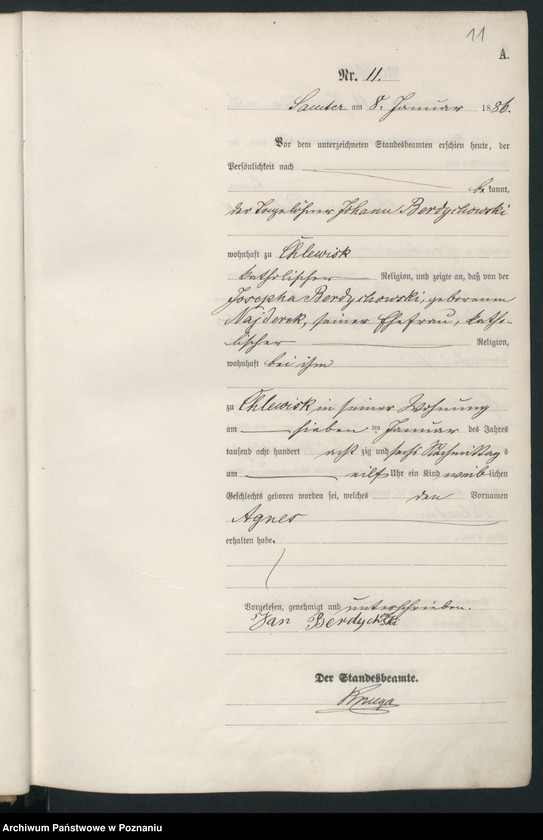 11
A.
Nr. 11.
Samter am 8. Januar 1886.
Vor dem unterzeichneten Standesbeamten erschien heute, der
Persönlichkeit nach
be kannt,
der Tagelöhner Johann Berdychowski
wohnhaft zu Chlewisk
katholischer Religion, und zeigte an, daß von der
Josepha Berdychowski, geborenen
Najderek, seiner Ehefrau, katho-
lischer Religion,
wohnhaft bei ihm
zu Chlewisk in seiner Wohnung
am sieben ten Januar des Jahres
tausend acht hundert acht zig und sechs Nachmittag s
um eilf Uhr ein Kind weib lichen
Geschlechts geboren worden sei, welches den Vornamen
Agnes
erhalten habe.
Vorgelesen, genehmigt und unterschrieben.
Jan Berdychowski
Der Standesbeamte.
Archiwum Państwowe w Poznaniu